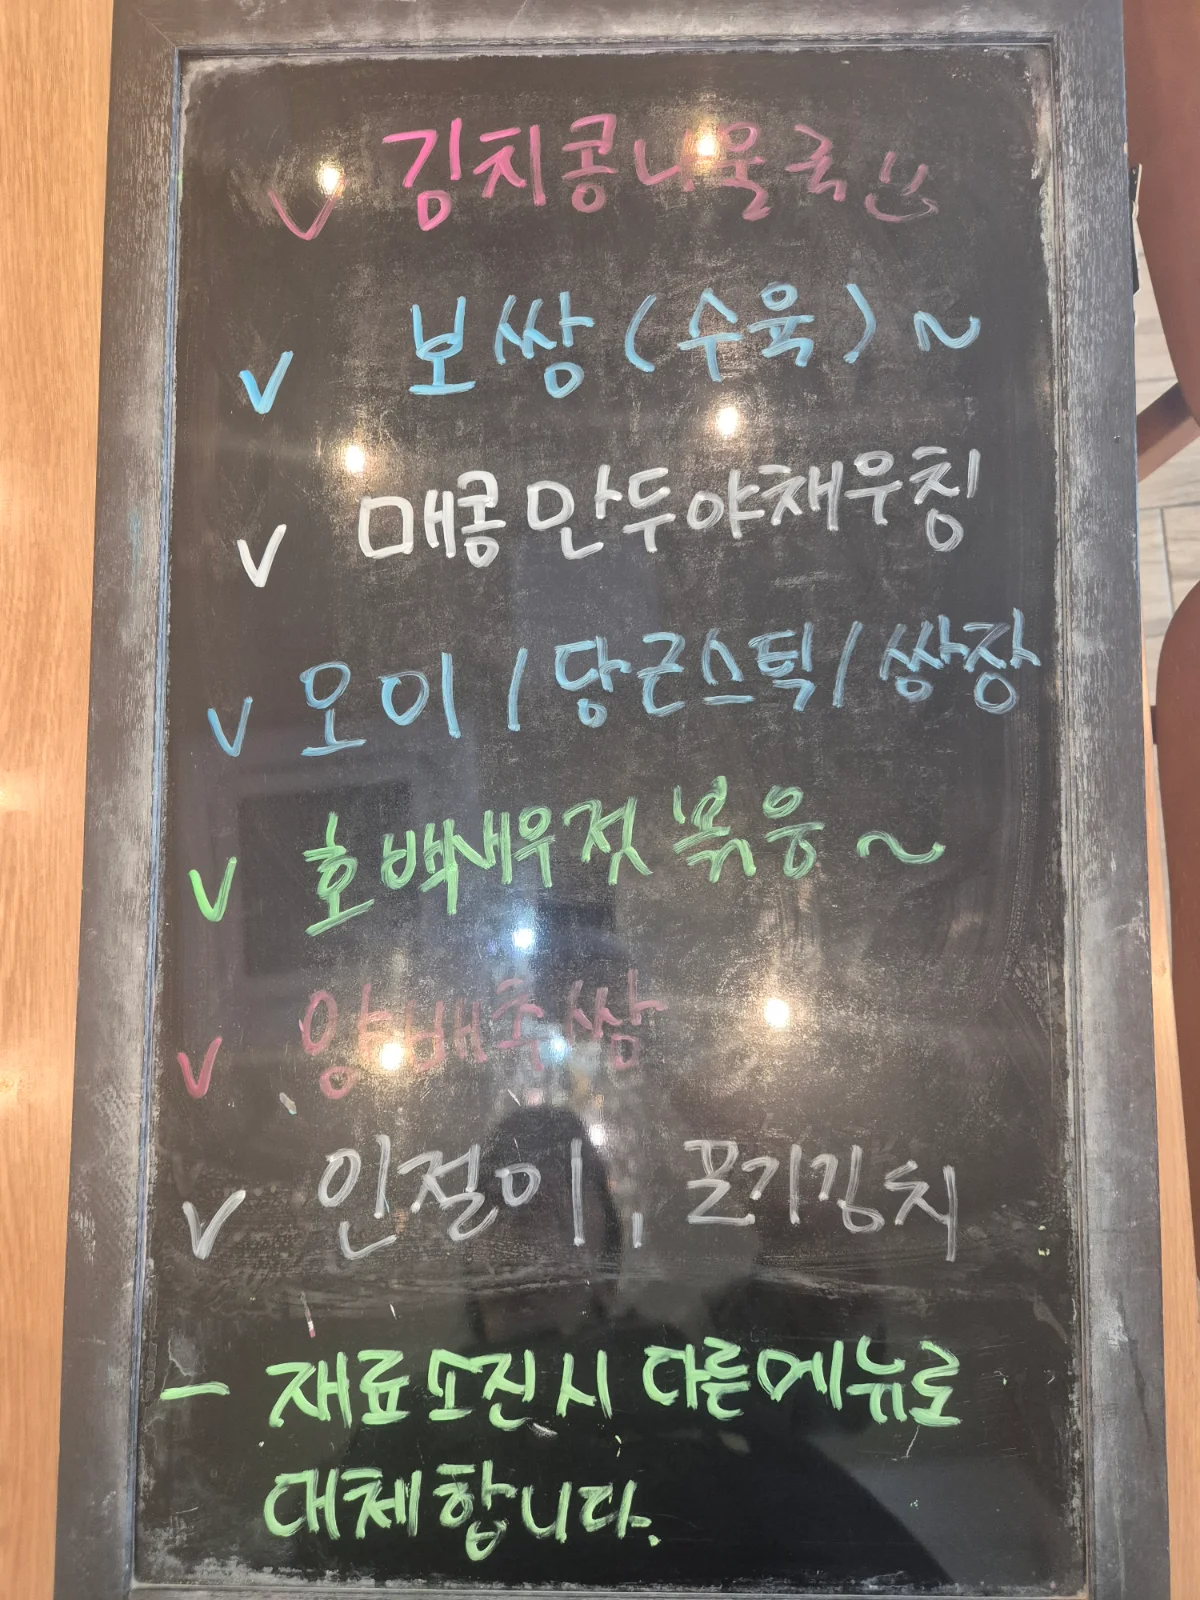 V 김치콩나물국
V 보쌍(수육)~
V 매콩만두야채우침
V 오이/당근스틱/쌍장
V 호백새우젓볶응~
V 양배추쌍
V 인절이, 포기김치
- 재료소진시 다른메뉴로
대체합니다.